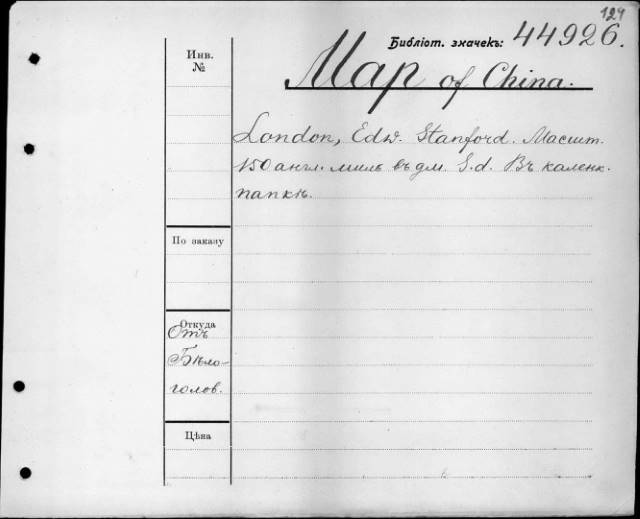 129
Библіот. значекъ: 44926.
Инв.
№
Map of China.
London, Edw. Stanford. Масшт.
150 англ. миль въ дм. S.d. Въ каленк.
папкѣ.
По заказу
Откуда
Отъ
Бѣло-
голов.
Цѣна